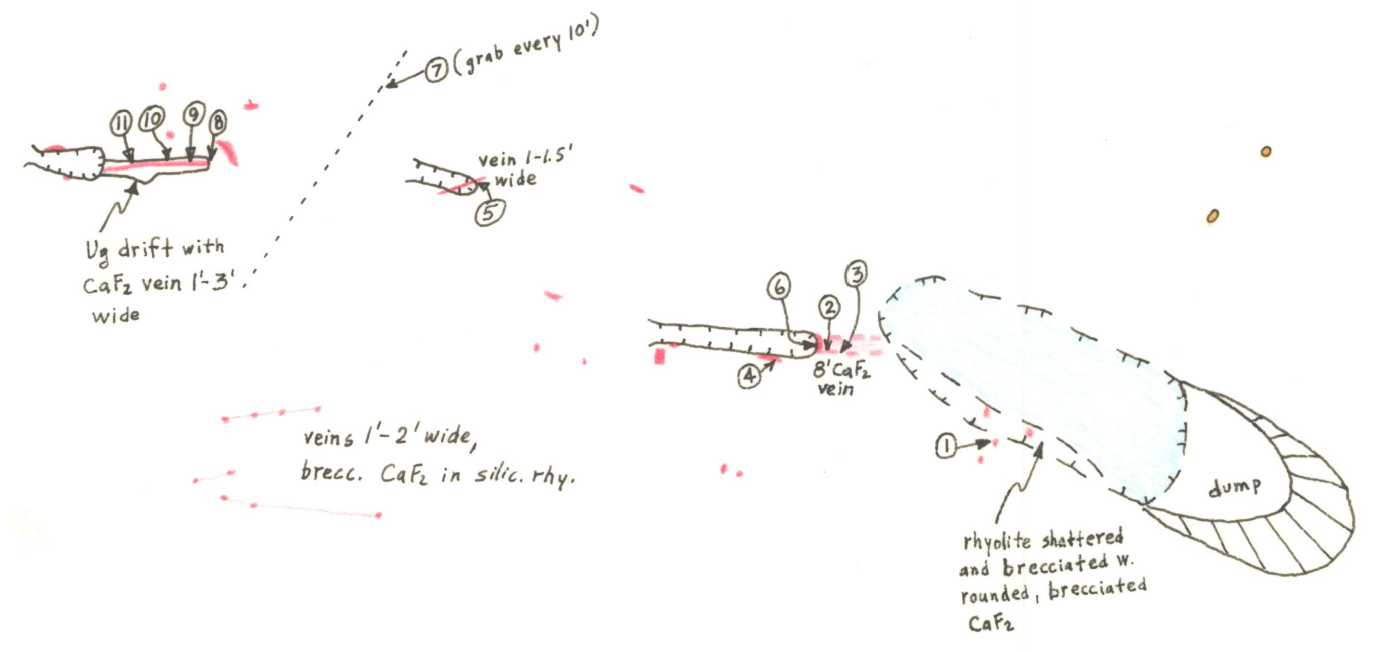 ⑦ (grab every 10')
⑪ ⑩ ⑨ ⑧
vein 1-1.5'
wide
⑤
Ug drift with
CaF₂ vein 1'-3'
wide
⑥ ② ③
④
8' CaF₂
vein
veins 1'-2' wide,
brecc. CaF₂ in silic. rhy.
①
dump
rhyolite shattered
and brecciated w.
rounded, brecciated
CaF₂